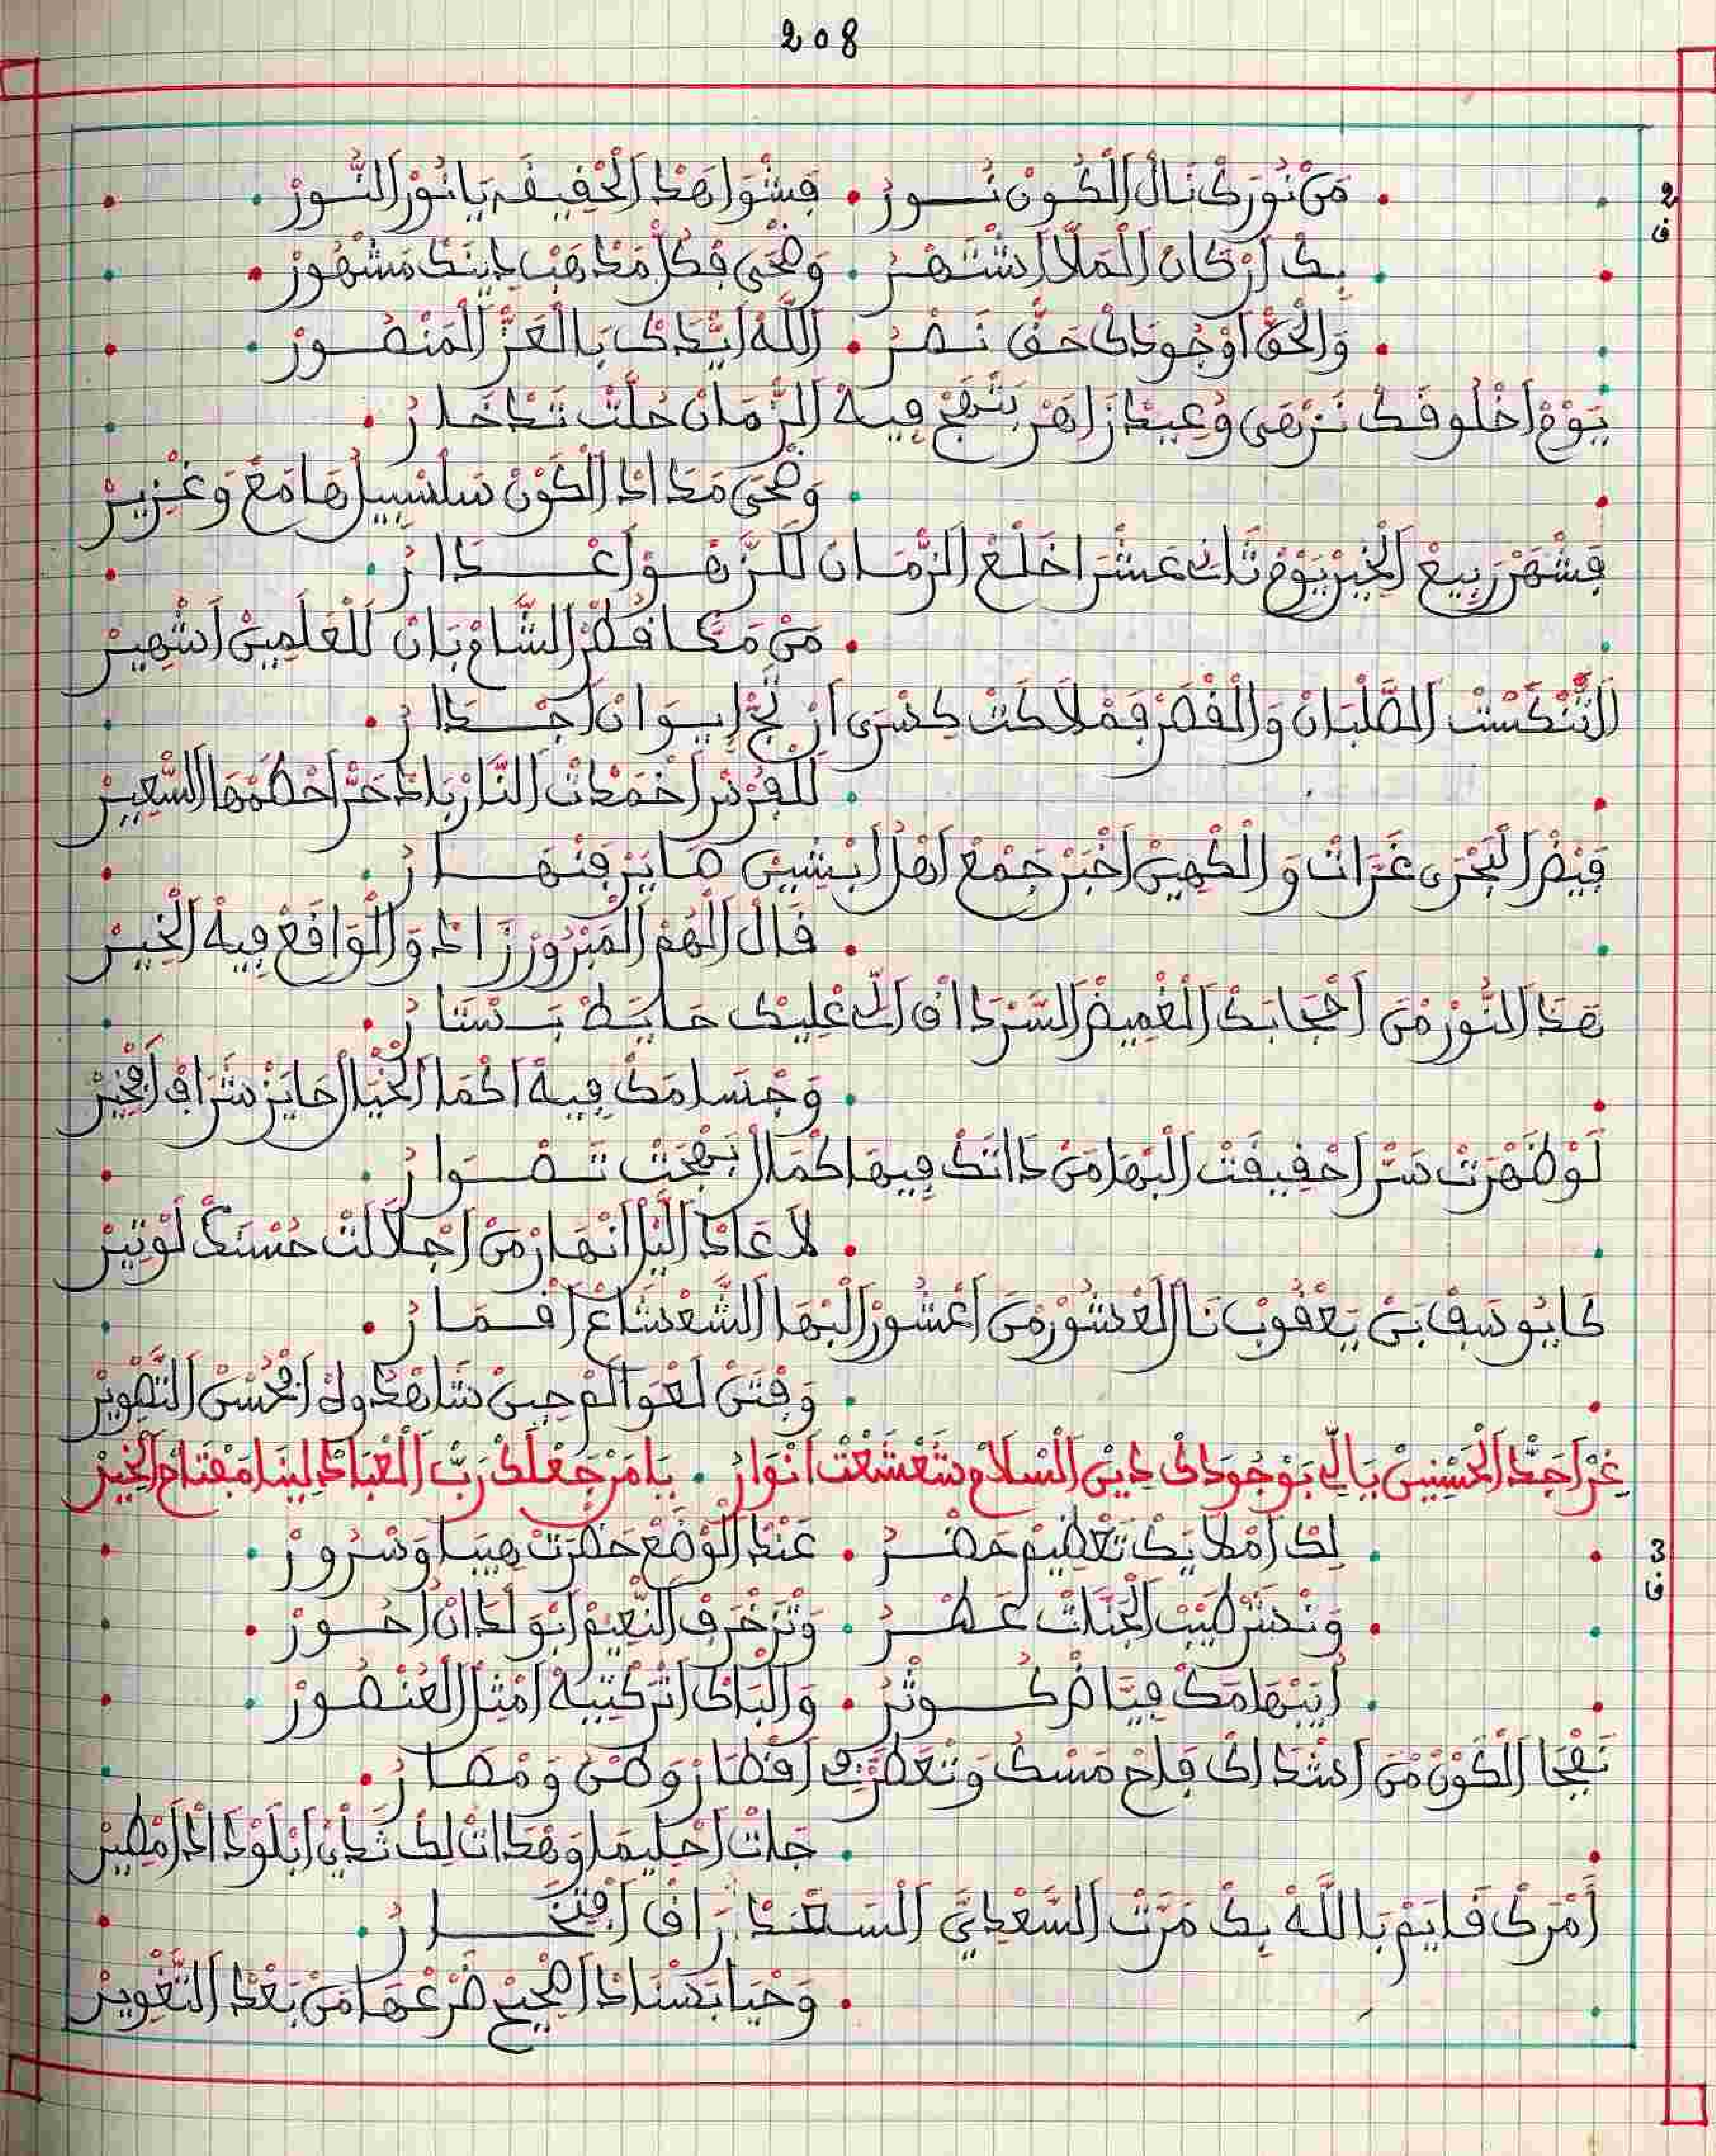 208
2 ف
مَنْ نُورَكْ نَالْ اَلْكُونْ نُــورُ • فِشْوَاهَدْ اَلْحْقِيقَه يَا نُورْ اَلنُّـورْ
بِكْ اَرْكَانْ اَلْمَلَّا اَشْتَـهْـرُ • وَضْحَى فِكُلّْ مَدْهَبْ دِينَكْ مَشْهُورْ
وَالْحَقّْ اَوْجُودَكْ حَقّْ نَـصْـرُ • اَللَّهْ اَيّْدَكْ بَالْعَزّْ اَلْمَنْصُـورْ
يَوْمْ اَخْلُوقَكْ نَزْهَى وُعِيدْ زَاهَرْ بَتْهَجْ فِيهْ اَلزّْمَانْ حُلَّتْ تَدْخَارُ
وَضْحَى مَدَادْ اَلْكَوْنْ سَلْسَبِيلْ هَامَعْ وَغْزِيرْ
فِشْهَرْ رَبِيعْ اَلْخِيرْ يَوْمْ ثَانِي عَشْرَا خَلْعْ اَلزّْمَانْ لَلزَّهْـوْ اَعْـدَارُ
مَنْ مَكَّا قُطْرْ اَلشَّامْ بَانْ لَلْعَلَمِينْ اَشْهِيرْ
اَلتّْنَكْسَتْ اَلصَّلْبَانْ وَالْقْصَرْ فَمْلَاكَتْ كِسْرَى اَرْتَجّْ اِيـوَانْ اَجْـدَارُ
لَلْفُرْسْ اَخْمَدْتْ اَلنَّارْ بَادْ حَرّْ اَحْطَمْهَا اَلسّْعِيرْ
فَيْضْ اَلْبَحْرِي غَرَاتْ وَالْكْهِينْ اَخْبَرْ جَمْعْ اَهْلْ اَبْشِيشْ صَايَرْ فَنْهَـارُ
قَالْ اَلْهُمْ اَلْمَبْرُورْ زَادْ وَالْوَاقَعْ فِيهْ اَلْخِيرْ
هَدَا اَلنُّورْ مْنْ اَحْجَابَكْ اَلْغْمِيضْ اَلسَّرّْدَاقْ اَلِّي عْلِيكْ حَايَطْ بَـسْتَارُ
وَجْسَامَكْ فِيهْ اَكْمَا اَلْخْيَالْ حَايَزْ شَرَافْ اَفْخِيرْ
لَوْ ظَهْرَتْ سَرّْ اَحْقِيقَتْ اَلْبْهَا مَنْ دَاتَكْ فِيهَا كْمَالْ بَهْجَتْ تَـصْـوَارُ
لَا عَادْ اَللِّيلْ اَنْهَارْ مَنْ اَجْلَالَتْ حُسْنَكْ لَوْنِيرْ
كَايُوسَفْ بَنْ يَعْقُوبْ نَالْ اَلْعْشُورْ مَنْ اَعْشُورْ اَلْبْهَا اَلشَّعْشَاعْ اَقْـمَـارُ
وَفْتَنْ لَعْوَالَمْ حِينْ شَاهْدُوهْ اَفْحُسْنْ اَلتَّصْوِيرْ
غِرْ اَجَدّْ اَلْحَسْنِينْ يَالِّي بَوْجُودَكْ دِينْ اَلسْلَامْ شَعْشَعْتْ اَنْوَارُ • يَا مَنْ جَعْلَكْ رَبّْ اَلْعْبَادْ لِينَا مَفْتَاحْ اَلْخِيرْ
3 ف
لِكْ اَمْلَايَكْ تَعْظِيمْ حَضْـرُ • عَنْدْ اَلْوَضْعْ حَضْرَتْ هِيبَا وَسْرُورْ
وَنْشَرْ طِيبْ اَلْجَنَّاتْ عَـطْـرُ • وَتْزَخْرَفْ اَلنّْعِيمْ اَبْوَلْدَانْ اَحُـورْ
اَبْبْهَامَكْ فِيَّاضْ كُـوثْرُ • وَالْبَاكْ اَتْرَكْتِيبَهْ اَمْثِلْ اَلْعُنْصُورْ
نَفْحَا اَلْكَوْنْ مْنْ اَشْدَاكْ فَاحْ مَسْكْ وَتْعَطْرَتْ اَقْطَارْ وَطْنْ وَمْصَـارُ
جَاتْ اَحْلِيمَا وَهْدَاتْ لِكْ ثَدْيْ اَبْلَوْدَادْ اَمْطِيرْ
اَمْرَكْ قَايَمْ بَاللَّهْ بِكْ مَرَّتْ اَلسَّعْدِيَّ اَلسَّعْدْ رَاقْ اَفْتَخَـارُ
وَحْيَا بَسْنَادْ اَصْحِيحْ ضَرْعْهَا مَنْ بَعْدْ اَلتَّغْوِيرْ